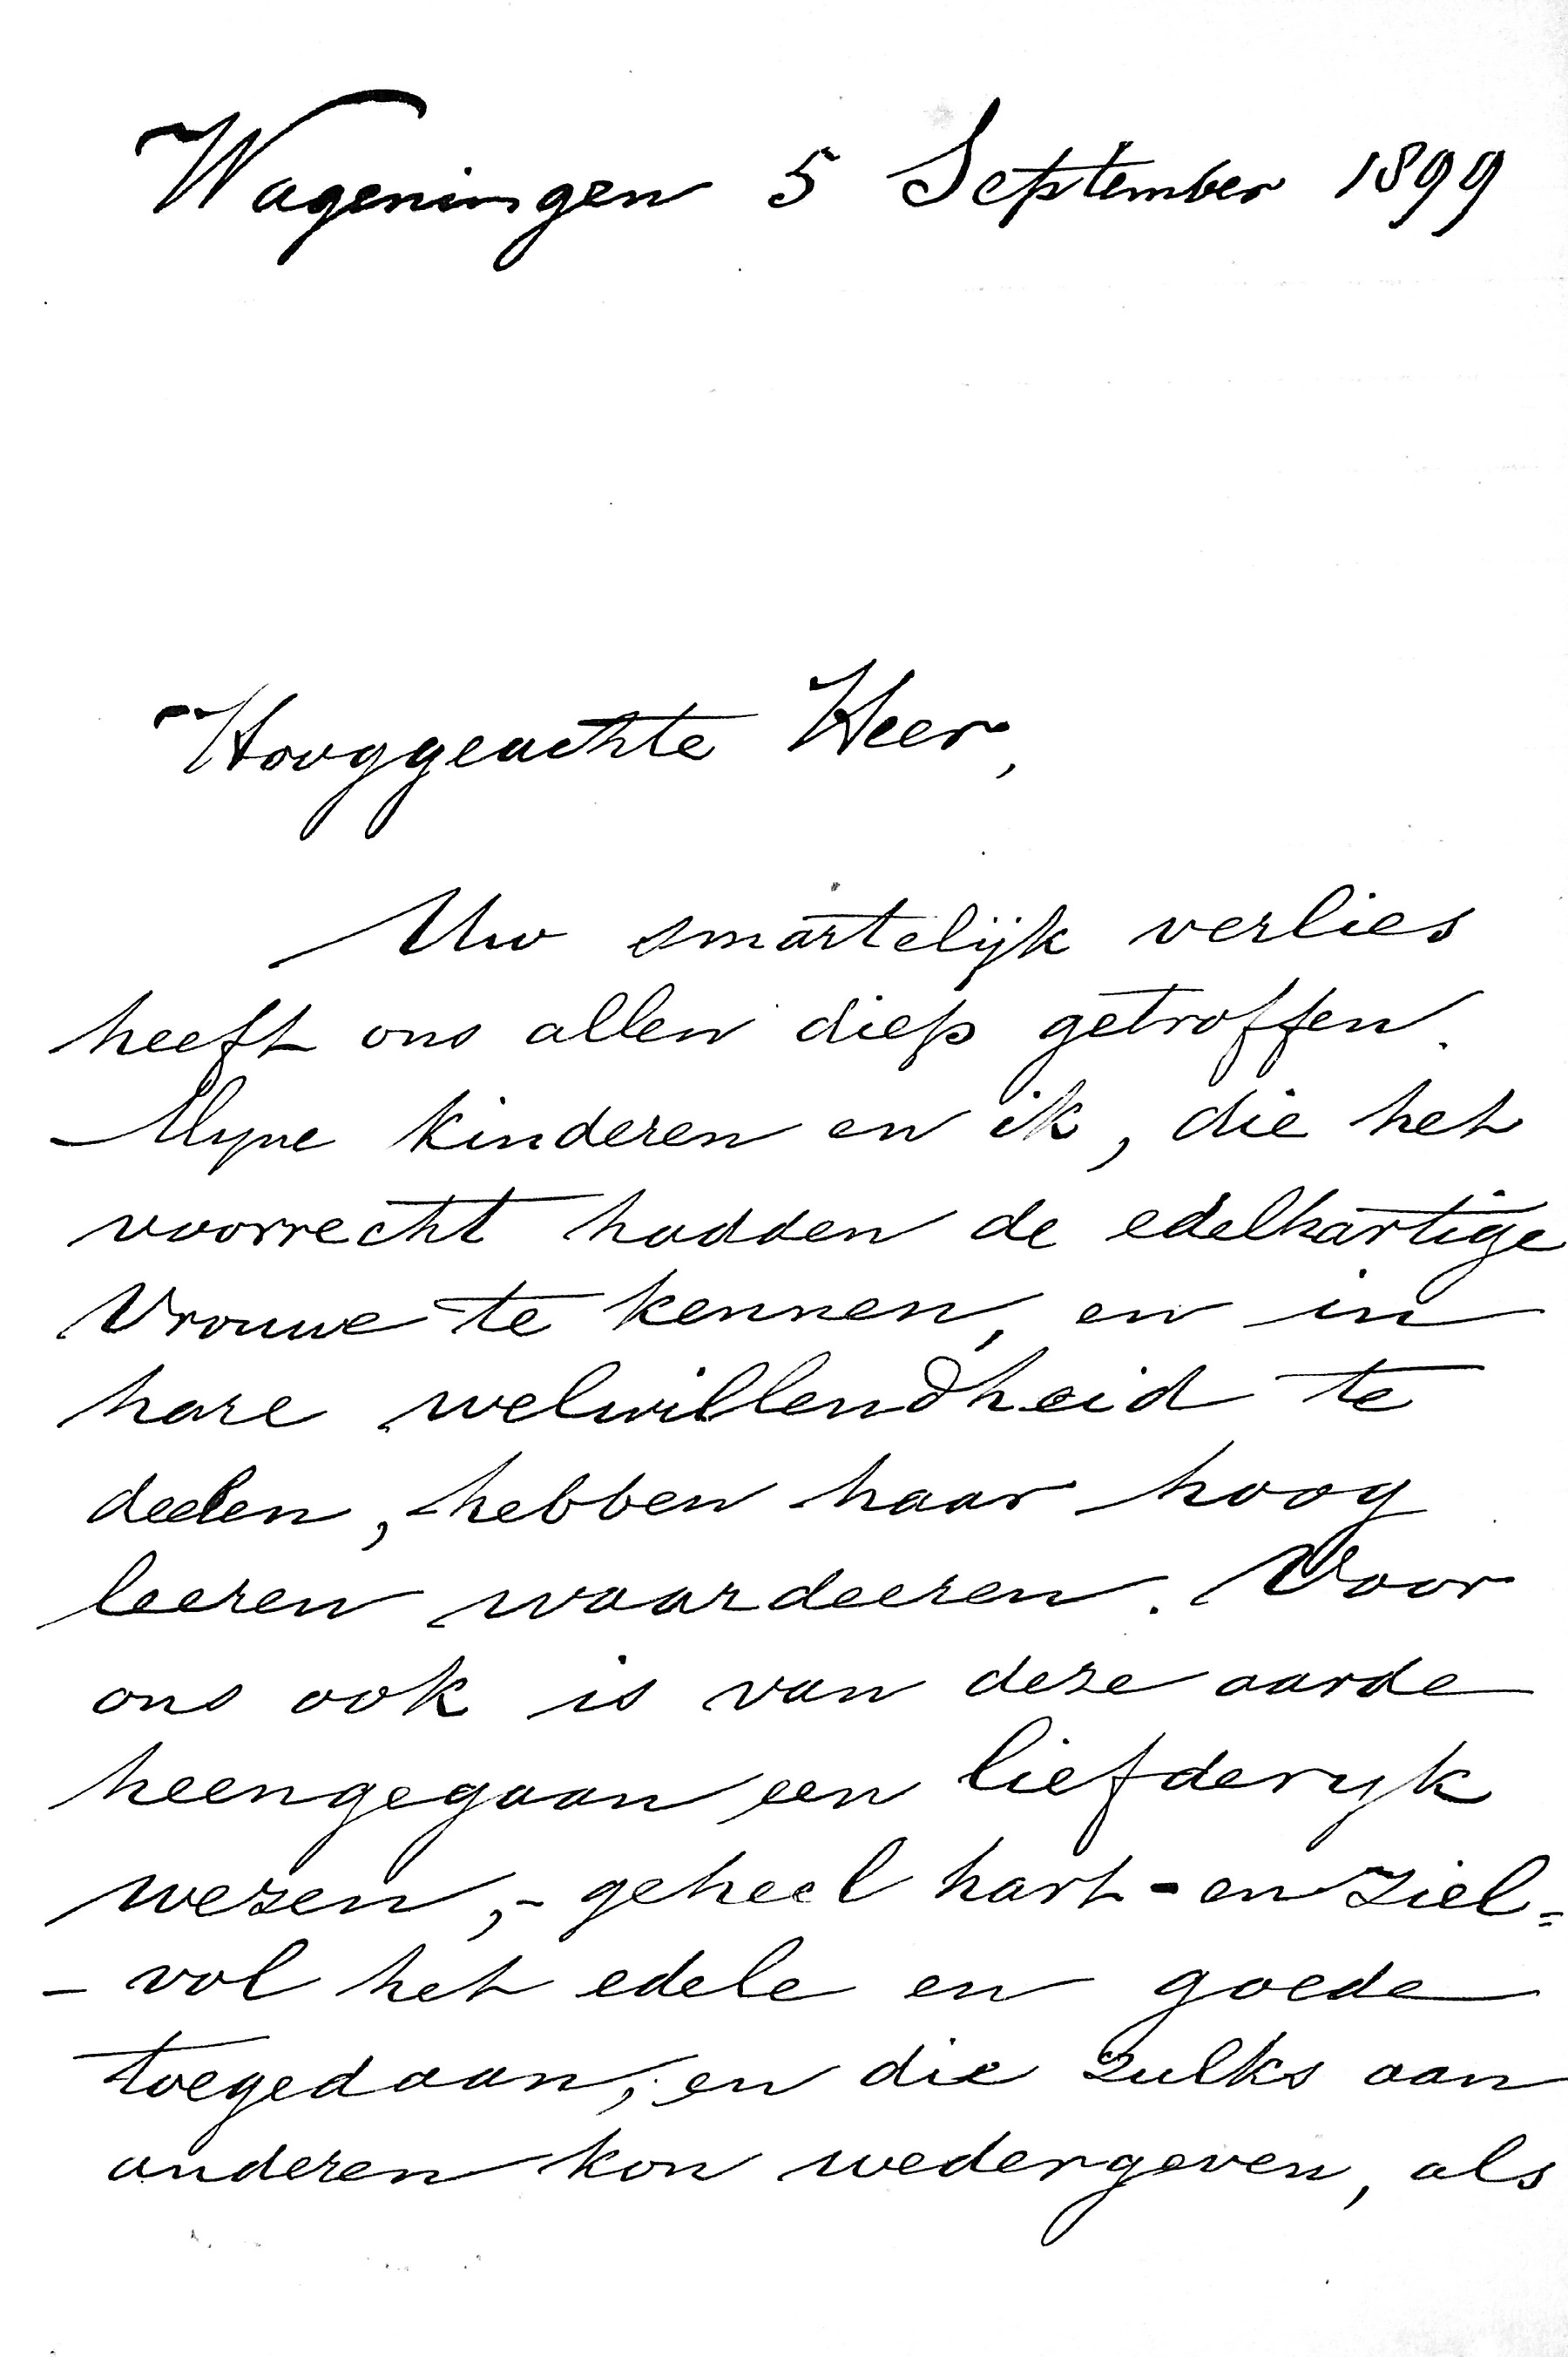 Wageningen 5 September 1899
Hooggeachte Heer,
Uw smartelijk verlies
heeft ons allen diep getroffen.
Myne kinderen en ik, die het
voorrecht hadden de edelhartige
Vrouwe te kennen, en in
hare welwillendheid te
deelen, hebben haar hoog
leeren waardeeren. Voor
ons ook is van deze aarde
heengegaan een liefderyk
wezen, - geheel hart - en ziel=
- vol het edele en goede
toegedaan, en die zulks aan
anderen kon wedergeven, als